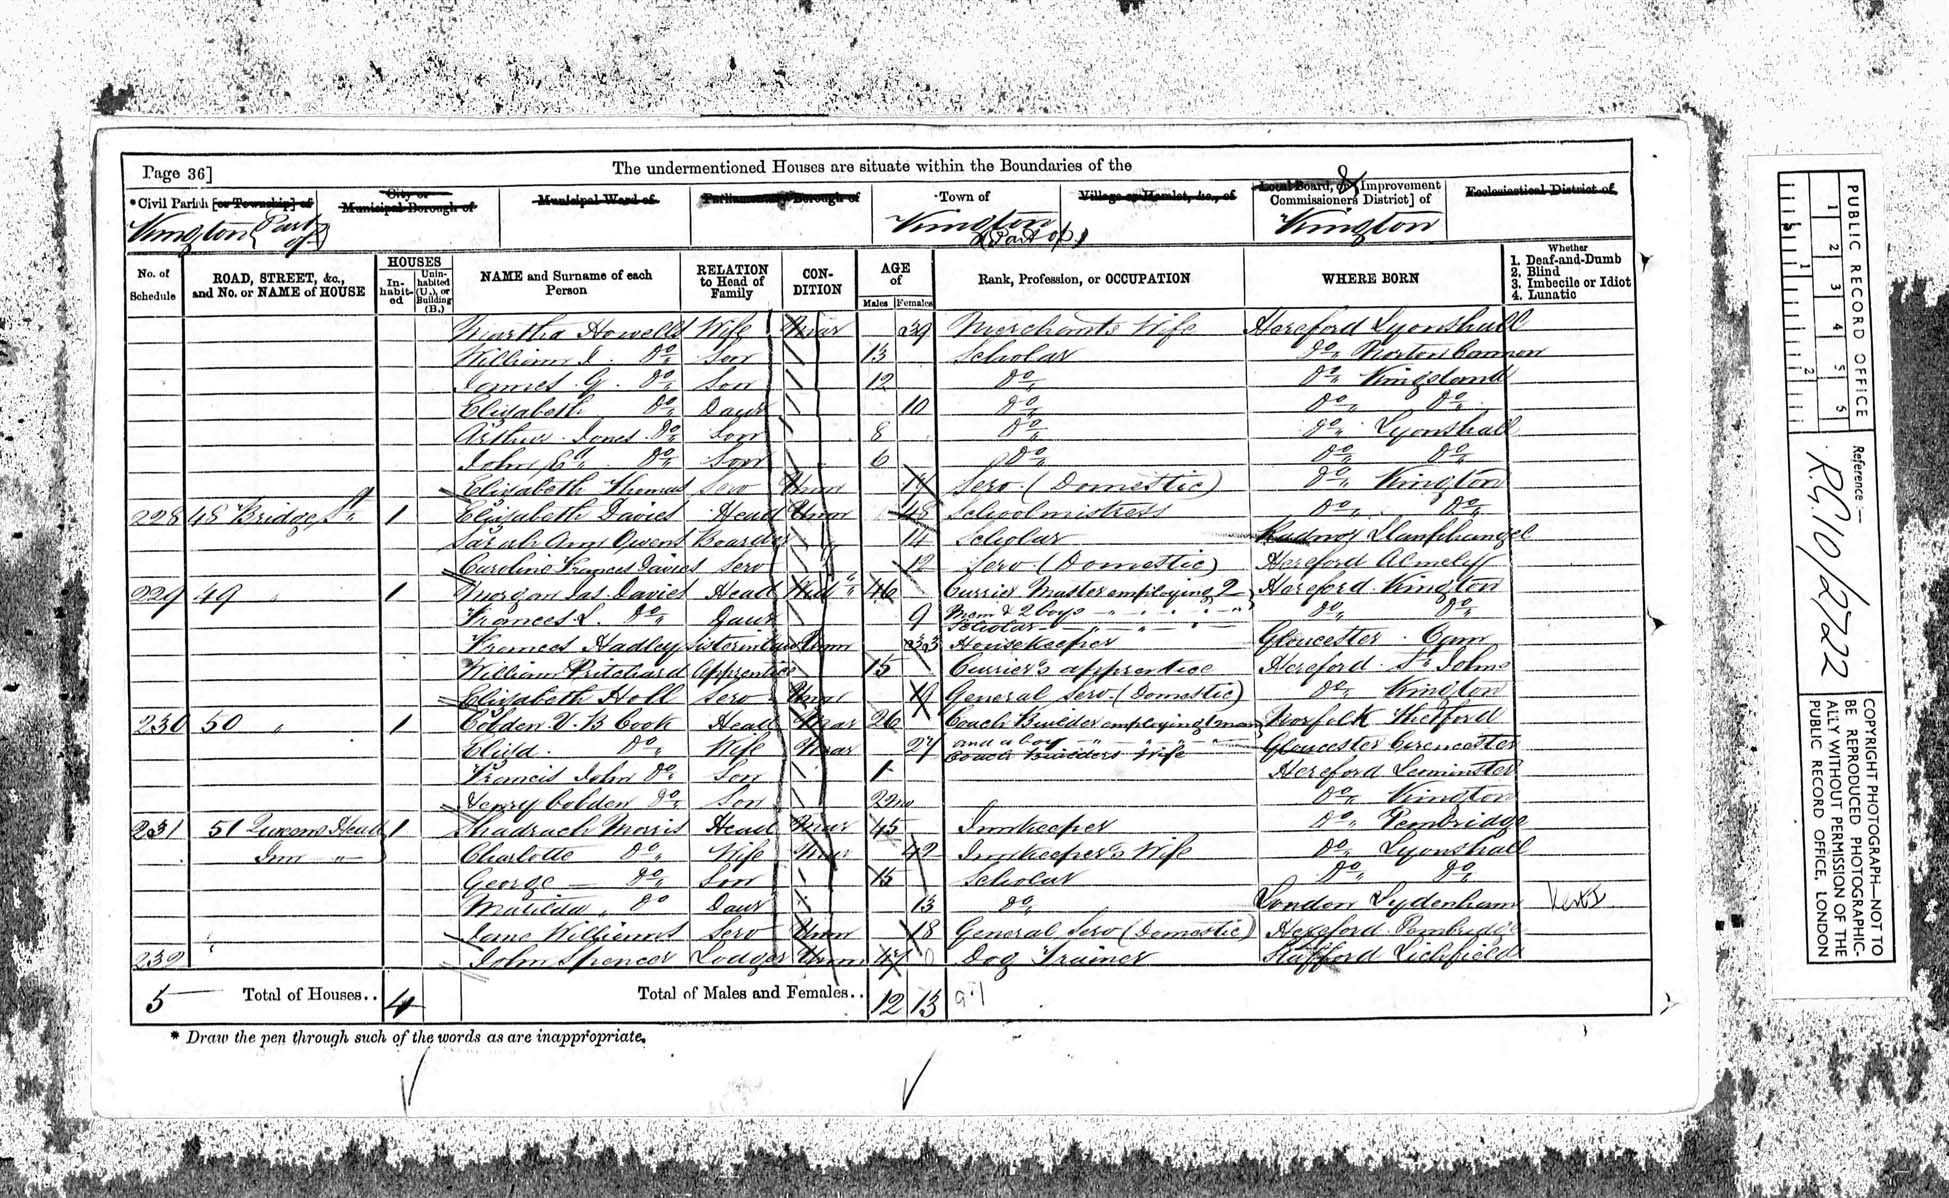 Page 36]
The undermentioned Houses are situate within the Boundaries of the
*Civil Parish [or Township] of
City or Municipal Borough of
Municipal Ward of
Parliamentary Borough of
Town of
Village or Hamlet, &c., of
Local Board, or Improvement Commissioners District] of
Ecclesiastical District of
Kington (Part of)
Kington (Part of)
Kington
No. of Schedule
ROAD, STREET, &c., and No. or NAME of HOUSE
HOUSES
In-habit-ed
Unin-habited (U.), or Building (B.)
NAME and Surname of each Person
RELATION to Head of Family
CON-DITION
AGE of
Males
Females
Rank, Profession, or OCCUPATION
WHERE BORN
Whether
1. Deaf-and-Dumb
2. Blind
3. Imbecile or Idiot
4. Lunatic
Martha Howells Wife Mar 39 Merchants Wife Hereford Lyonshall
William J. Do Son 13 Scholar Do Norton Cannon
James G. Do Son 12 Do Do Kingsland
Elizabeth Do Daur 10 Do Do Do
Arthur Jones Do Son 8 Do Do Lyonshall
John Ed Do Son 6 Do Do Do
Elizabeth Thomas Serv Unm 14 Serv. (Domestic) Do Kington
228 48 Bridge St 1 Elizabeth Davies Head Unm 48 Schoolmistress Do Do
Sarah Ann Owens Boarder 14 Scholar Radnor Llanfihangel
Caroline Frances Davies Serv 12 Serv. (Domestic) Hereford Almeley
229 49 " 1 Morgan Jas. Davies Head Widr 46 Currier Master employing 2 Hereford Kington
Men & 2 boys
Frances L. Do Daur 9 Scholar Do Do
Frances Hadley Sister in law Unm 33 Housekeeper Gloucester Cam
William Pritchard Apprentice 15 Currier's apprentice Hereford St Johns
Elizabeth Holl Serv Unm 19 General Serv. (Domestic) Do Kington
230 50 " 1 Cobden V. B Cook Head Mar 26 Coach Builder employing 1 man Norfolk Thetford
and a boy
Eliza. Do Wife Mar 27 Coach Builders Wife Gloucester Cirencester
Francis John Do Son 1 Hereford Leominster
Henry Cobden Do Son 2mo Do Kington
231 51 Queens Head 1 Shadrach Morris Head Mar 45 Innkeeper Do Pembridge
Inn " Charlotte Do Wife Mar 42 Innkeeper's Wife Do Lyonshall
George Do Son 15 Scholar Do Do
Matilda Do Daur 13 Do London Sydenham Kent
Jane Williams Serv Unm 18 General Serv (Domestic) Hereford Pembridge
232 " John Spencer Lodger Unm Dog Trainer Stafford Lichfield
5 Total of Houses.. 4 Total of Males and Females.. 12 13
* Draw the pen through such of the words as are inappropriate.
PUBLIC RECORD OFFICE
1 2 3 4 5 6
1 2
Reference:—
R.G.10/2722
COPYRIGHT PHOTOGRAPH—NOT TO BE REPRODUCED PHOTOGRAPHICALLY WITHOUT PERMISSION OF THE PUBLIC RECORD OFFICE, LONDON